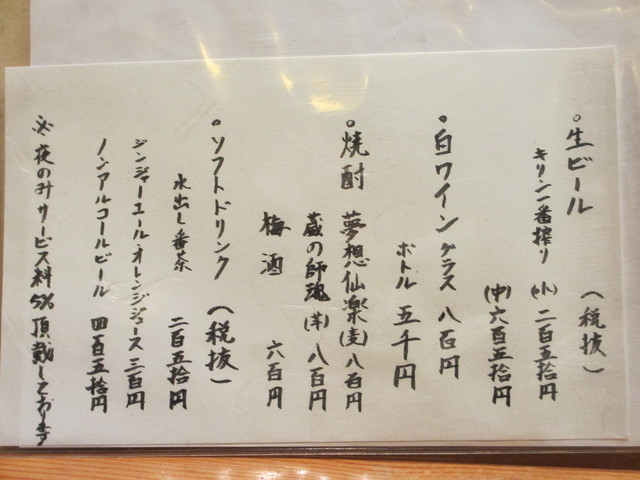 ○生ビール (税抜)
キリン一番搾り (小) 二百五拾円
(中) 六百五拾円
○白ワイン グラス 八百円
ボトル 五千円
○焼酎 夢想仙楽(麦) 八百円
蔵の師魂(芋) 八百円
梅酒 六百円
○ソフトドリンク (税抜)
水出し番茶 二百五拾円
ジンジャーエール・オレンジジュース 三百円
ノンアルコールビール 四百五拾円
※夜のみサービス料5%頂戴しております